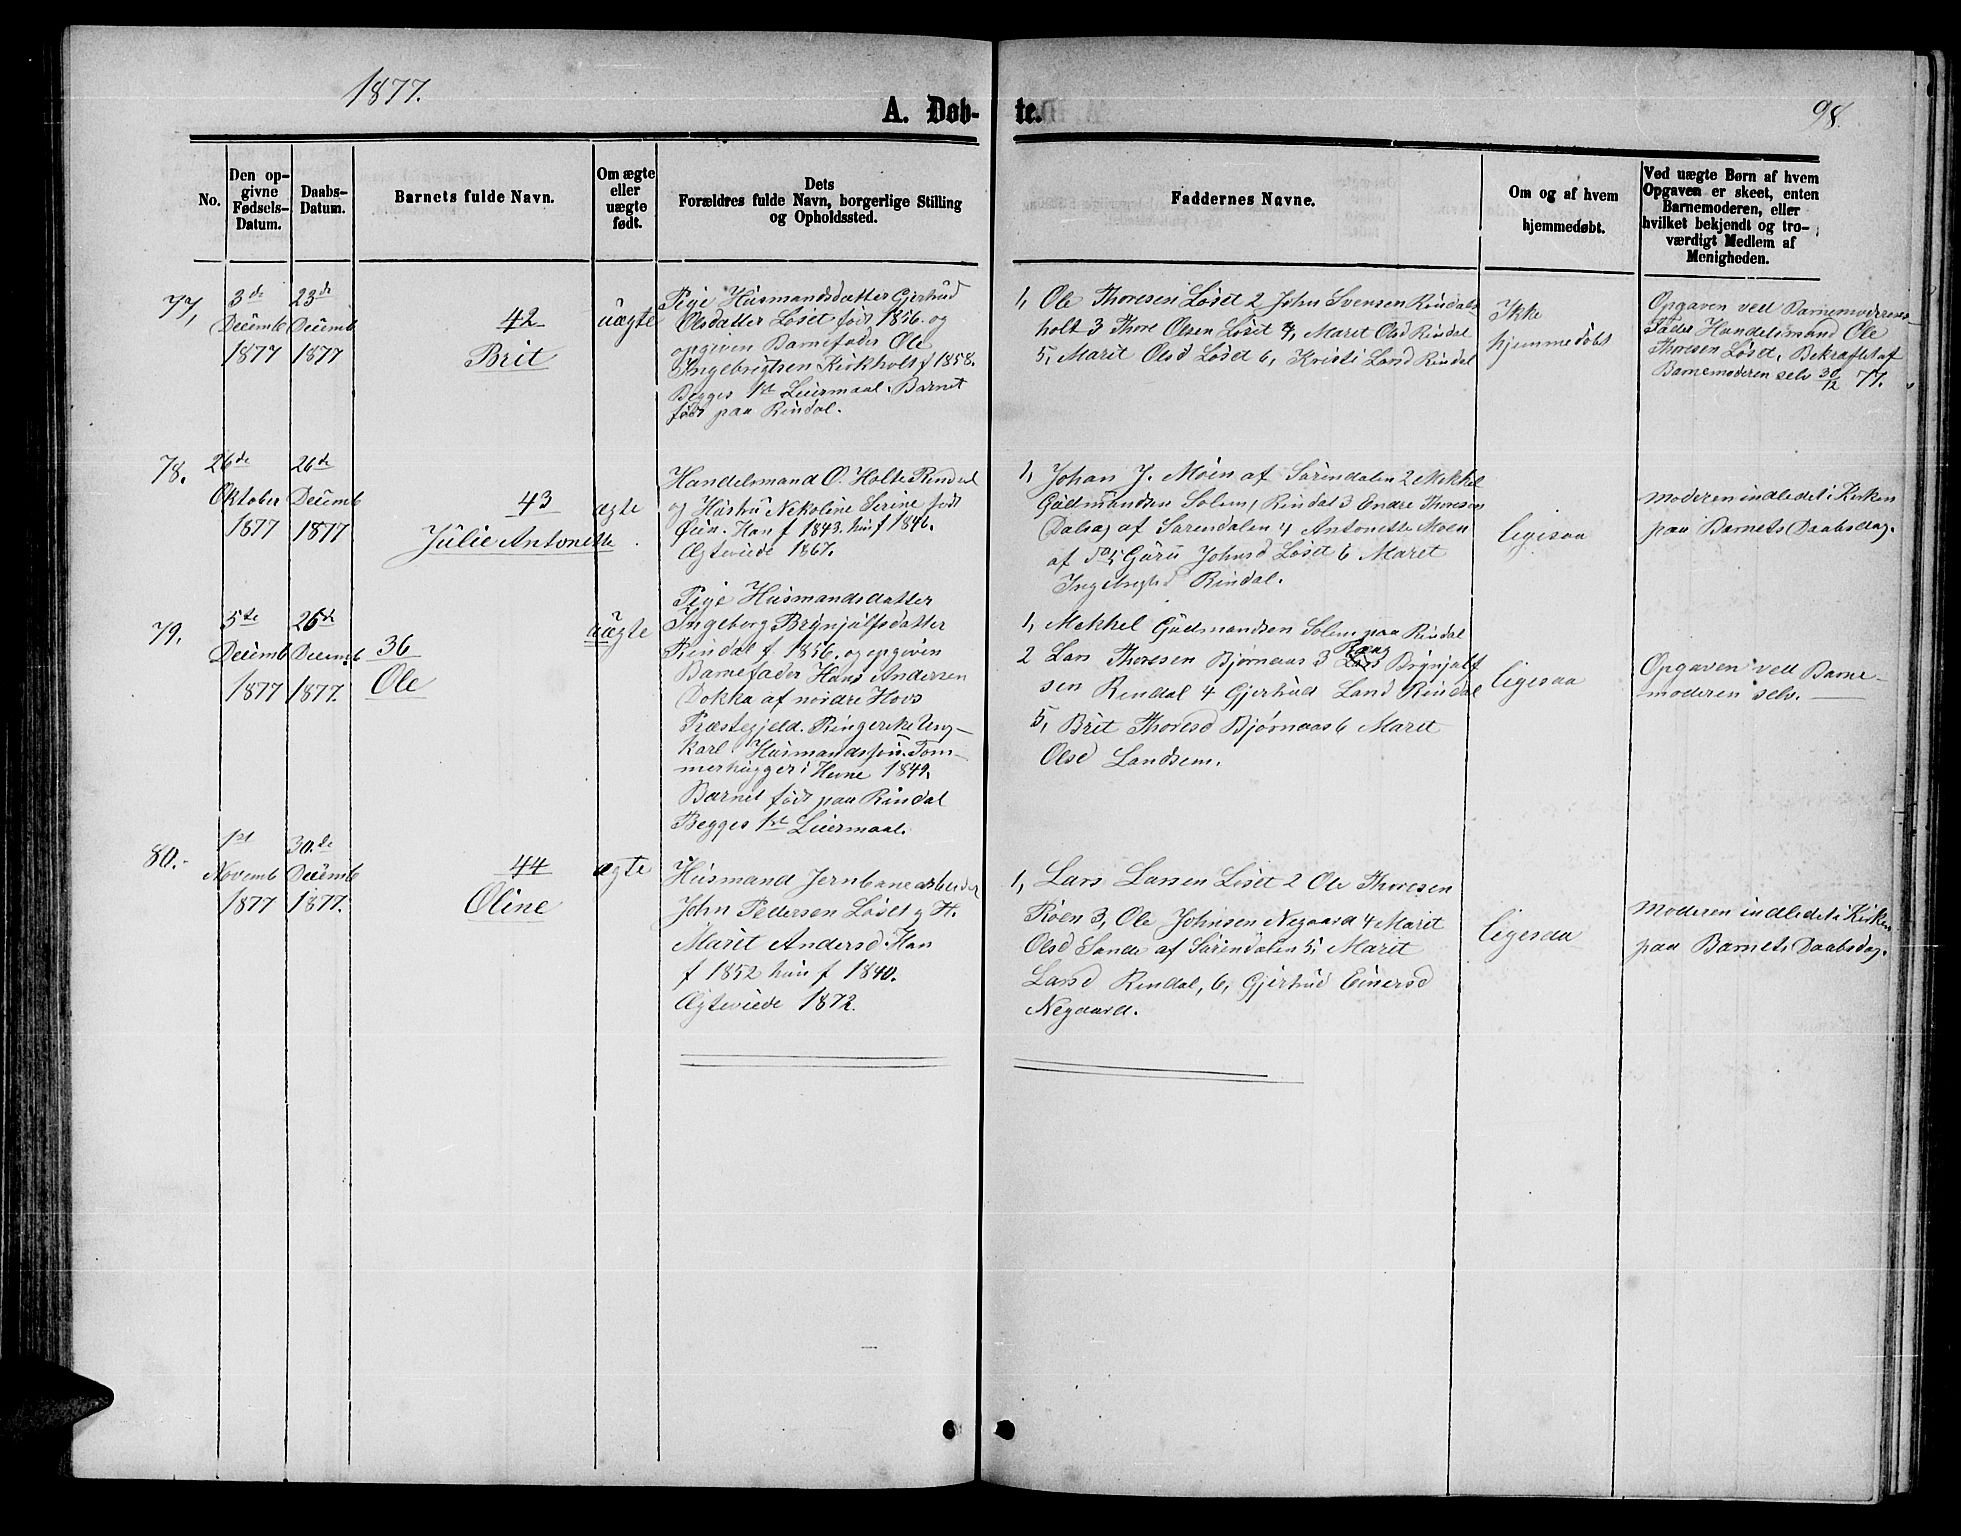 1877.
A. Døb-
te.
98.
No.
Den op-
givne
Fødsels-
Datum.
Daabs-
Datum.
Barnets fulde Navn.
Om ægte
eller
uægte
født.
Dets
Forældres fulde Navn, borgerlige Stilling
og Opholdssted.
Faddernes Navne.
Om og af hvem
hjemmedøbt.
Ved uægte Børn af hvem
Opgaven er skeet, enten
Barnemoderen, eller
hvilket bekjendt og tro-
værdigt Medlem af
Menigheden.
77,
3de
Decemb
1877
23de
Decemb
1877
42
Brit
uægte
Pige Husmandsdatter Gjerhud
Olsdatter Løset født 1856. og
opgiven Barnefader Ole
Ingebrigtsen Kirkholt f 1858.
Begges 1st Leiermaal. Barnet
født paa Rindal.
1, Ole Thoresen Løset 2 John Svensen Rindals
holt 3 Thore Olsen Løset 4, Maret Olsd Rindal
5, Marit Olsd Løset 6, Kristi Larsd Rindal
Ikke
hjemmedøbt
Opgaven ved Barnemoderens
Fader Handelsmand Ole
Thoresen Løset, Bekræftet af
Barnemoderen selv 30/12 77.
78.
26de
Oktober
1877
26de
Decemb
1877
43
Julie Antonette
ægte
Handelsmand O. Holte Rindal
og Hustru Nekoline Serine født
Øien. Han f 1843. hun f 1846.
Ægteviede 1867.
1, Johan J. Moen af Surendalen 2 Mekkel
Gudmundsen Solem, Rindal 3 Endre Thoresen
Dalseg af Surendalen 4 Antonette Moen
af do 5 Guru Johnsd Løset 6 Maret
Ingebrigtsd Rindal.
ligesaa
Moderen indledet i Kirken
paa Barnets Daabsdag.
79.
5te
Decemb
1877
26de
Decemb
1877.
36
Ole
uægte
Pige Husmandsdatter
Ingeborg Brynjulfsdatter
Rindal f 1856. og opgiven
Barnefader Hans Andersen
Dokka af nordre Hovs
Præstegjeld. Ringerike Ung-
karl Husmandssøn. Tøm-
merhugger i Hevne 1849.
Barnet født paa Rindal
Begges 1st Leiermaal.
1, Mekkel Gudmundsen Solem paa Rindal
2 Lars Thoresen Bjørnaas 3 Brynjulf
sen Rindal 4 Gjerhud Larsd Rindal
5, Brit Thoresd Bjørnaas 6 Maret
Olsd Landsem.
ligesaa
Opgaven ved Barne-
moderen selv.
80.
1st
Novemb
1877
30.de
Decemb
1877.
44
Oline
ægte
Husmand Jernbanearbeider
John Pedersen Løset g H.
Marit Andersd. Han
f 1852 hun f 1840.
Ægteviede 1872.
1, Lars Larsen Løset 2 Ole Thoresen
Røen 3, Ole Johnsen Negaard 4 Marit
Olsd Sande af Surendalen 5, Marit
Larsd Rindal, 6, Gjerhud Einersd
Negaard.
ligesaa
Moderen indledet i Kirken
paa Barnets Daabsdag.